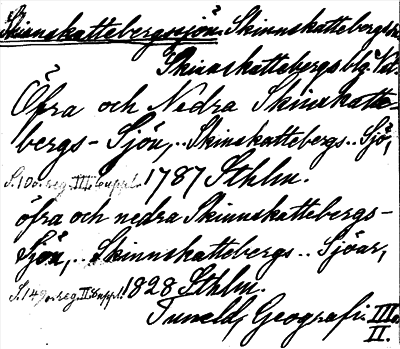 Skinnskattebergssjön. Skinnskattebergs
Skinnskattebergs blg. Vstm.
Öfra och Nedra Skinskatte-
bergs-Sjön,.. Skinskattebergs.. Sjö,
S. 10 o. reg. III 6 uppl. 1787 Sthlm.
öfra och nedra Skinnskattebergs-
Sjön,.. Skinnskattebergs.. Sjöar,
S. 149 o. reg. II 8 uppl. 1828 Sthlm.
Tuneld, Geografi. III o.
II.